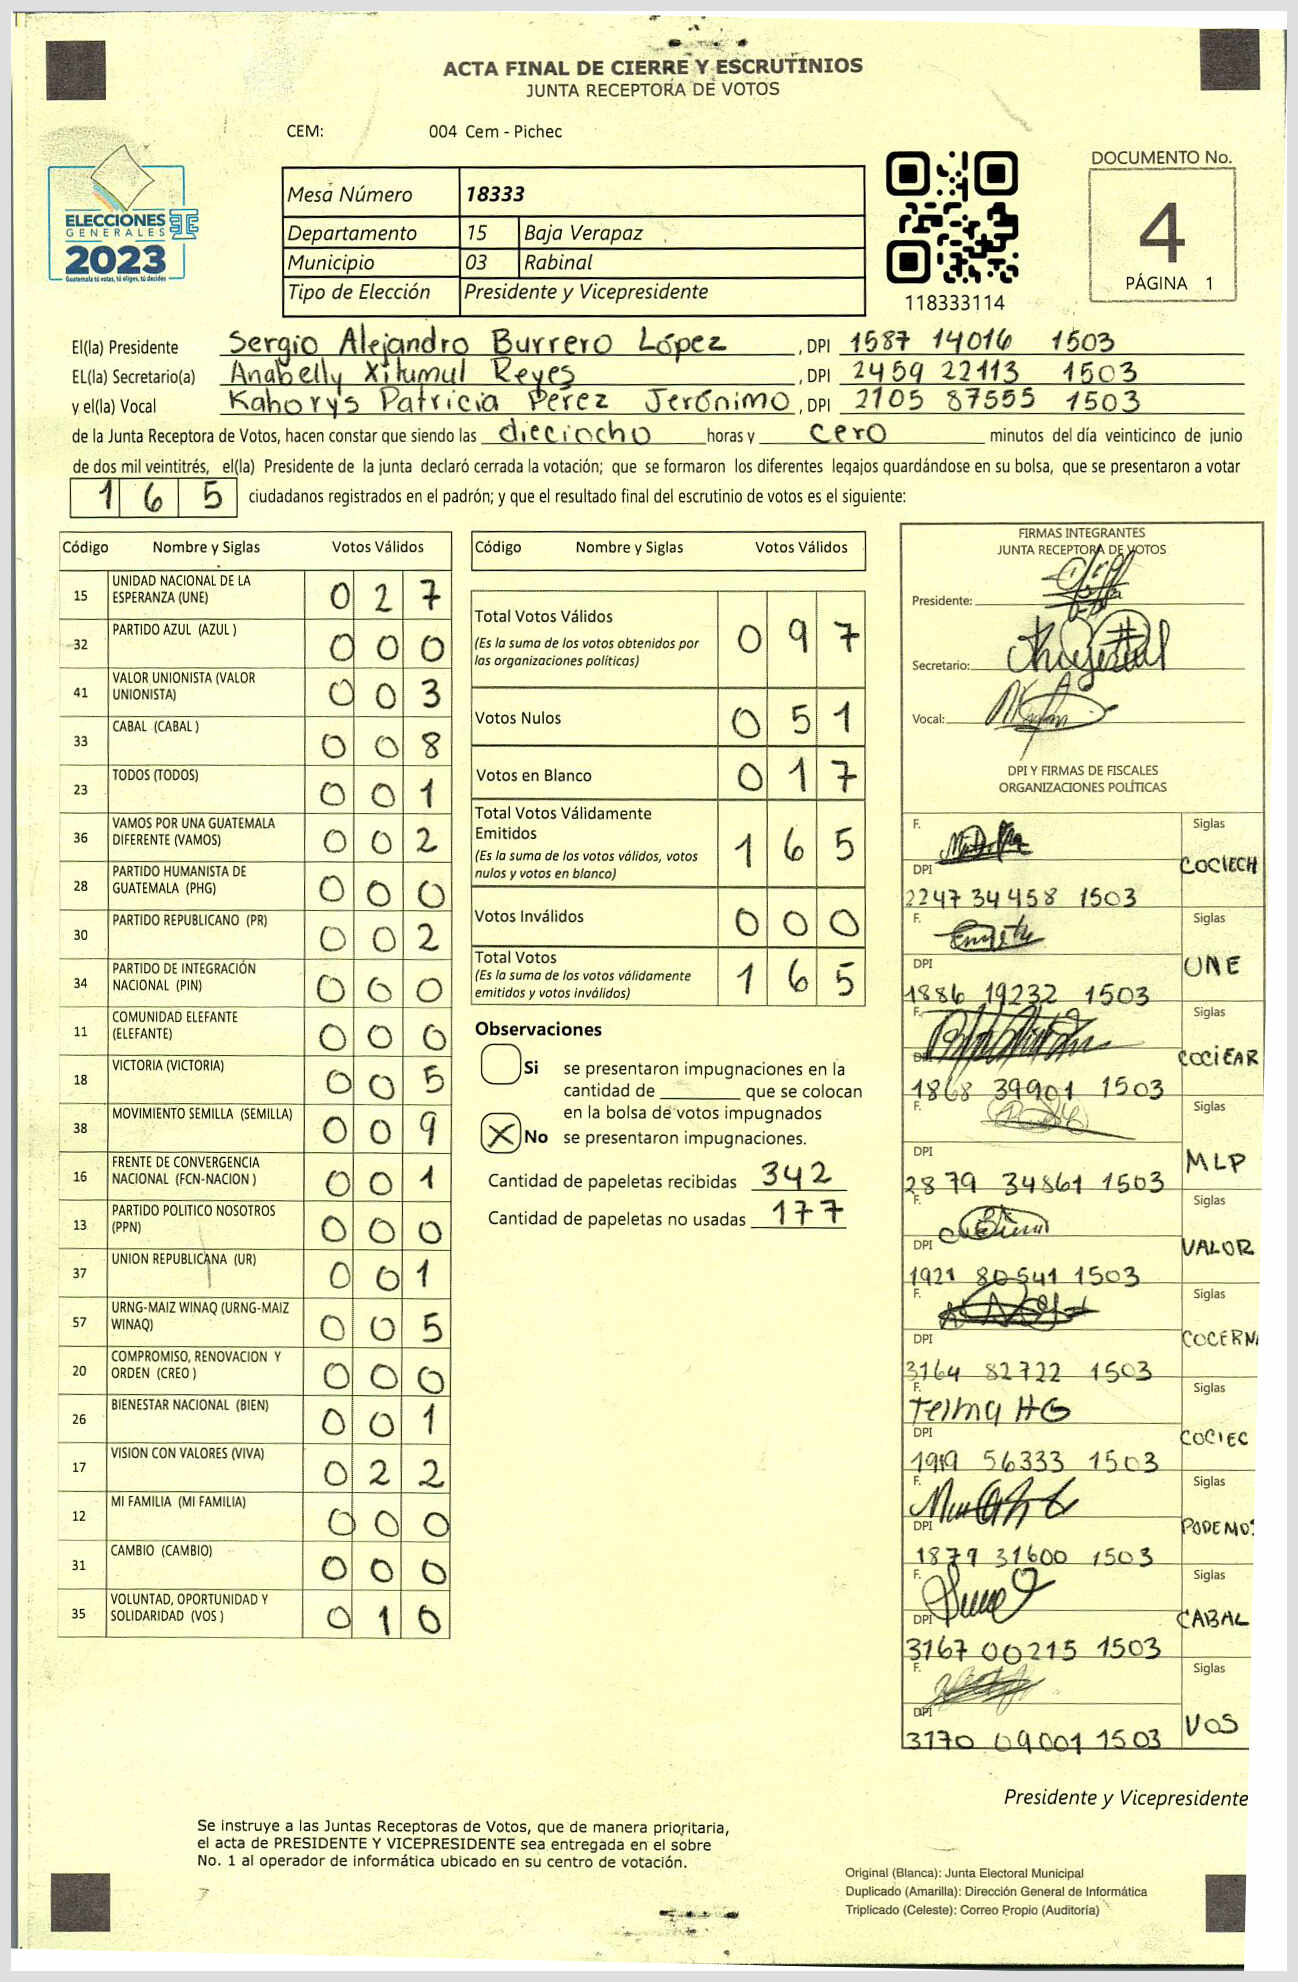 ACTA FINAL DE CIERRE Y ESCRUTINIOS
JUNTA RECEPTORA DE VOTOS
CEM: 004 Cem - Pichec
ELECCIONES
GENERALES
2023
Guatemala tú votas, tú eliges, tú decides
Mesa Número 18333
Departamento 15 Baja Verapaz
Municipio 03 Rabinal
Tipo de Elección Presidente y Vicepresidente
118333114
DOCUMENTO No.
4
PÁGINA 1
El(la) Presidente Sergio Alejandro Burrero López , DPI 1587 14016 1503
EL(la) Secretario(a) Anabelly Xitumul Reyes , DPI 2459 22113 1503
y el(la) Vocal Kahorys Patricia Pérez Jerónimo , DPI 2105 87555 1503
de la Junta Receptora de Votos, hacen constar que siendo las dieciocho horas y cero minutos del día veinticinco de junio
de dos mil veintitrés, el(la) Presidente de la junta declaró cerrada la votación; que se formaron los diferentes legajos guardándose en su bolsa, que se presentaron a votar
165 ciudadanos registrados en el padrón; y que el resultado final del escrutinio de votos es el siguiente:
Código Nombre y Siglas Votos Válidos
15 UNIDAD NACIONAL DE LA ESPERANZA (UNE) 027
32 PARTIDO AZUL (AZUL ) 000
41 VALOR UNIONISTA (VALOR UNIONISTA) 003
33 CABAL (CABAL ) 008
23 TODOS (TODOS) 001
36 VAMOS POR UNA GUATEMALA DIFERENTE (VAMOS) 002
28 PARTIDO HUMANISTA DE GUATEMALA (PHG) 000
30 PARTIDO REPUBLICANO (PR) 002
34 PARTIDO DE INTEGRACIÓN NACIONAL (PIN) 000
11 COMUNIDAD ELEFANTE (ELEFANTE) 000
18 VICTORIA (VICTORIA) 005
38 MOVIMIENTO SEMILLA (SEMILLA) 009
16 FRENTE DE CONVERGENCIA NACIONAL (FCN-NACION ) 001
13 PARTIDO POLITICO NOSOTROS (PPN) 000
37 UNION REPUBLICANA (UR) 001
57 URNG-MAIZ WINAQ (URNG-MAIZ WINAQ) 005
20 COMPROMISO, RENOVACION Y ORDEN (CREO ) 000
26 BIENESTAR NACIONAL (BIEN) 001
17 VISION CON VALORES (VIVA) 022
12 MI FAMILIA (MI FAMILIA) 000
31 CAMBIO (CAMBIO) 000
35 VOLUNTAD, OPORTUNIDAD Y SOLIDARIDAD (VOS ) 010
Código Nombre y Siglas Votos Válidos
Total Votos Válidos 097
(Es la suma de los votos obtenidos por
las organizaciones políticas)
Votos Nulos 051
Votos en Blanco 017
Total Votos Válidamente
Emitidos 165
(Es la suma de los votos válidos, votos
nulos y votos en blanco)
Votos Inválidos 000
Total Votos 165
(Es la suma de los votos válidamente
emitidos y votos inválidos)
Observaciones
Si se presentaron impugnaciones en la
cantidad de que se colocan
en la bolsa de votos impugnados
X No se presentaron impugnaciones.
Cantidad de papeletas recibidas 342
Cantidad de papeletas no usadas 177
FIRMAS INTEGRANTES
JUNTA RECEPTORA DE VOTOS
Presidente:
Secretario:
Vocal:
DPI Y FIRMAS DE FISCALES
ORGANIZACIONES POLÍTICAS
F. Siglas
DPI COCIECH
2247 34458 1503
F. Siglas
DPI UNE
1886 19232 1503
F. Siglas
DPI COCIEAR
1868 39901 1503
F. Siglas
DPI MLP
2879 34861 1503
F. Siglas
DPI VALOR
1921 80541 1503
F. Siglas
DPI COCERNA
3164 82722 1503
F. Telma HG Siglas
DPI COCIEC
1919 56333 1503
F. Siglas
DPI PODEMOS
1879 31600 1503
F. Siglas
DPI CABAL
3167 00215 1503
F. Siglas
DPI VOS
3170 09001 1503
Presidente y Vicepresidente
Se instruye a las Juntas Receptoras de Votos, que de manera prioritaria,
el acta de PRESIDENTE Y VICEPRESIDENTE sea entregada en el sobre
No. 1 al operador de informática ubicado en su centro de votación.
Original (Blanca): Junta Electoral Municipal
Duplicado (Amarilla): Dirección General de Informática
Triplicado (Celeste): Correo Propio (Auditoría)